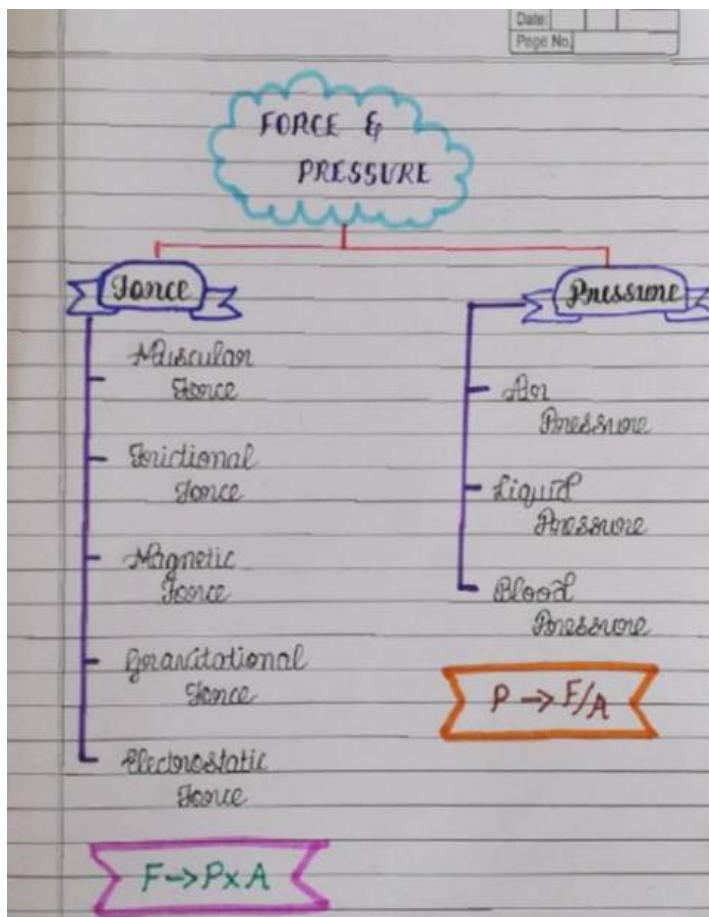 Date:
Page No.
FORCE &
PRESSURE
Force
Muscular
Force
Frictional
Force
Magnetic
Force
Gravitational
Force
Electrostatic
Force
F→P×A
Pressure
Air
Pressure
Liquid
Pressure
Blood
Pressure
P→F/A